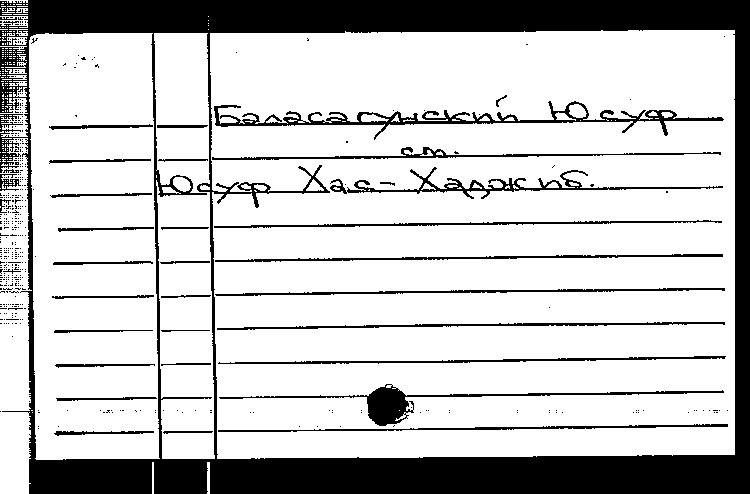 Баласагунский Юсуф
см.
Юсуф Хас-Хаджиб.